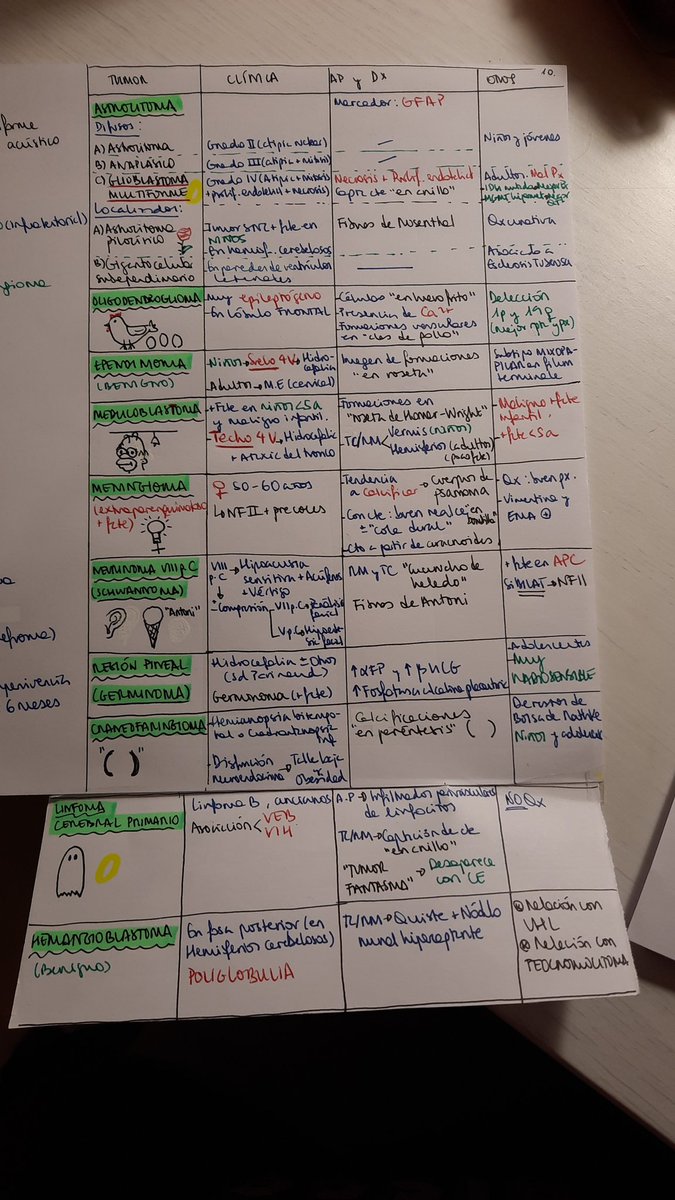 TUMOR CLÍNICA AP y DX OTROS 10.
ASTROCITOMA
Marcador: GFAP
Difusos:
A) Astrocitoma
Grado II (atipia nuclear)
Niños y jóvenes
B) ANAPLÁSICO
Grado III (atipia + mitosis)
C) GLIOBLASTOMA
MULTIFORME
Grado IV (Atipia + mitosis
+ prolif. endotelial + necrosis)
Necrosis + Prolif. endotelial
Capta cte "en anillo"
Adultos. Mal Px
Localizados:
A) Astrocitoma
pilocítico
Tumor SNC + fcte en
NIÑOS
En hemisf. cerebelosos
Fibras de Rosenthal
Qx curativa
B) Gigantocelular
subependimario
En paredes de ventrículos
laterales
Asociado a
Esclerosis Tuberosa
OLIGODENDROGLIOMA
- Muy epileptógeno
- En lóbulo FRONTAL
- Células "en huevo frito"
- Presencia de Ca2+
- Formaciones vasculares
en "alas de pollo"
Delección
1p y 19q
EPENDIMOMA
(BENIGNO)
- Niños → Suelo 4V → Hidro-
cefalia
- Adultos → M.E (cervical)
Imagen de formaciones
"en roseta"
Subtipo MIXOPA-
PILAR en filum
terminale
MEDULOBLASTOMA
- + Fcte en niños < 5a
y maligno infantil.
- Techo 4V → Hidrocefalia
+ Ataxia del tronco
Formaciones en
"roseta de Homer-Wright"
TC/RM
Vermis (niños)
Hemisferios (adultos)
(poco fcte)
- Maligno + fcte
infantil
+ fcte < 5a
MENINGIOMA
(extraparenquimatoso
+ fcte)
♀ 50-60 años
↳ NF II + precoces
- Tendencia
a calcificar → cuerpos de
psamoma
- Con cte: buen realce
± "cola dural"
- Cto a partir de aracnoides
- Qx: buen px.
- Vimentina y
EMA ⊕
NEURINOMA VIII p.C
(SCHWANNOMA)
"Antoni"
VIII p.C → Hipoacusia
sensitiva + Acúfenos
+ Vértigo
± Compresión
VII p.C → Parálisis
facial
V p.C → Hipoeste-
sia facial
RM y TC "cucurucho de
helado"
Fibras de Antoni
+ fcte en APC
Si BILAT → NF II
REGIÓN PINEAL
(GERMINOMA)
Hidrocefalia ± Otros
(Sd Parinaud)
Germinoma (+ fcte)
↑ αFP y ↑ β-HCG
↑ Fosfatasa alcalina placentaria
- Adolescentes
MUY
RADIOSENSIBLE
CRANEOFARINGIOMA
"( )"
- Hemianopsia bitempo-
ral o cuadrantanopsia inf
- Disfunción
neuroendocrina
Talla baja
y
obesidad
Calcificaciones
"en paréntesis" ( )
De restos de
Bolsa de Rathke
Niños y adolesc
LINFOMA
CEREBRAL PRIMARIO
Linfoma B, ancianos
Asociación < VEB
VIH
A.P → Infiltrados perivasculares
de linfocitos
TC/RM → Captación de cte
"en anillo"
"TUMOR
FANTASMA" → Desaparece
con CE
NO Qx
HEMANGIOBLASTOMA
(Benigno)
En fosa posterior (en
Hemisferios cerebelosos)
POLIGLOBULIA
TC/RM → Quiste + Nódulo
mural hipercaptante
@ Relación con
VHL
@ Relación con
FEOCROMOCITOMA
acústico
6 meses